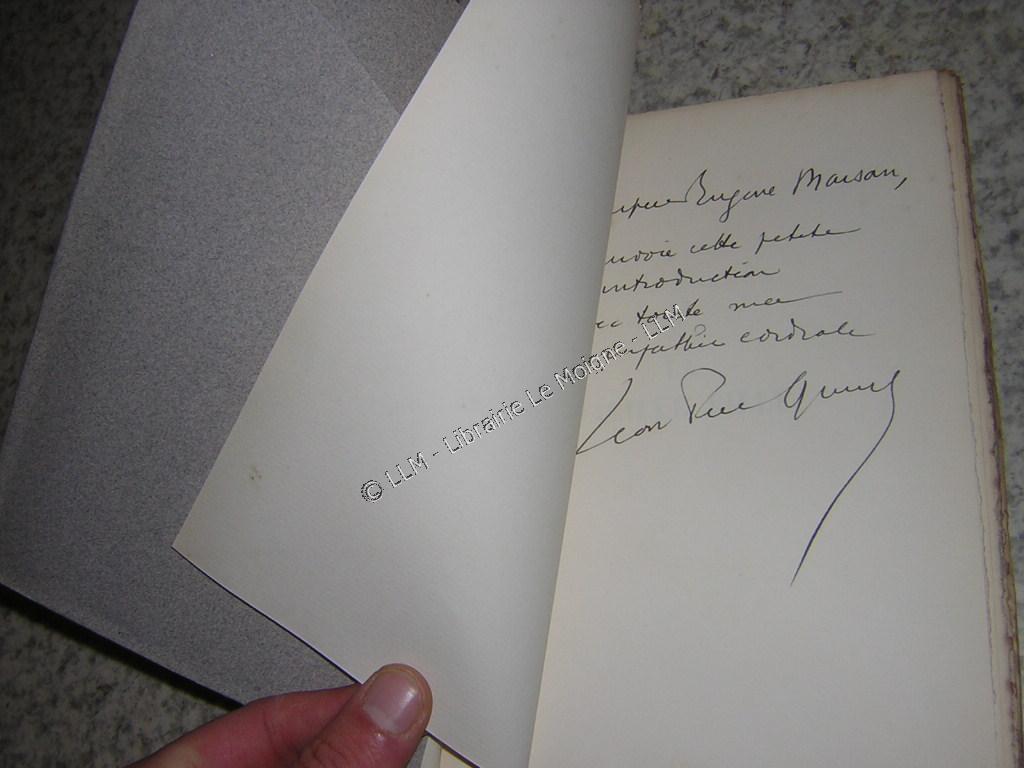 Eugène Marsan,
envoie cette petite
introduction
toute ma
sympathie cordiale
Léon Pierre Quint
© LLM - Librairie Le Moigne - LLM